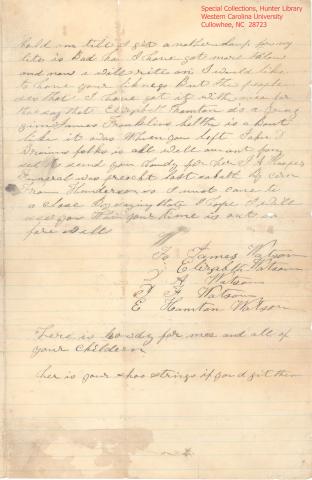 Special Collections, Hunter Library
Western Carolina University
Cullowhee, NC 28723
hold on till I get another lamp for my
lite is Bad than I have got more
and now I will rite on I would like
to have your likness But the people
ses that I have got it with me for
tha say that Elizabeth is a young
James Franklins helth is a bout
like it was When you left
folks is all well
to send you Candy for her
funeral was preacht last sabath by
From Henderson so I must come to
a close By saying that I hope I will
see you When your time is out so
fare Well
W
To James Watson
Elizabeth Watson
A Watson
F Watson
E Watson
here is Candy for mes and all of
your Childeren
her is your shoo strings if you git them